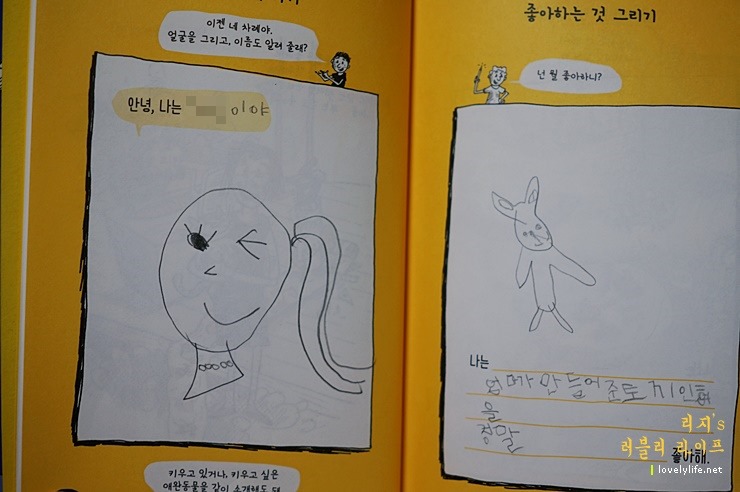 이젠 네 차례야.
얼굴을 그리고, 이름도 알려 줄래?
안녕, 나는 이야
키우고 있거나, 키우고 싶은
애완동물을 같이 소개해도 돼
좋아하는 것 그리기
넌 뭘 좋아하니?
나는
엄마가 만들어준 인형
을
정말
좋아해.
리지's
러블리 라이프
lovelylife.net